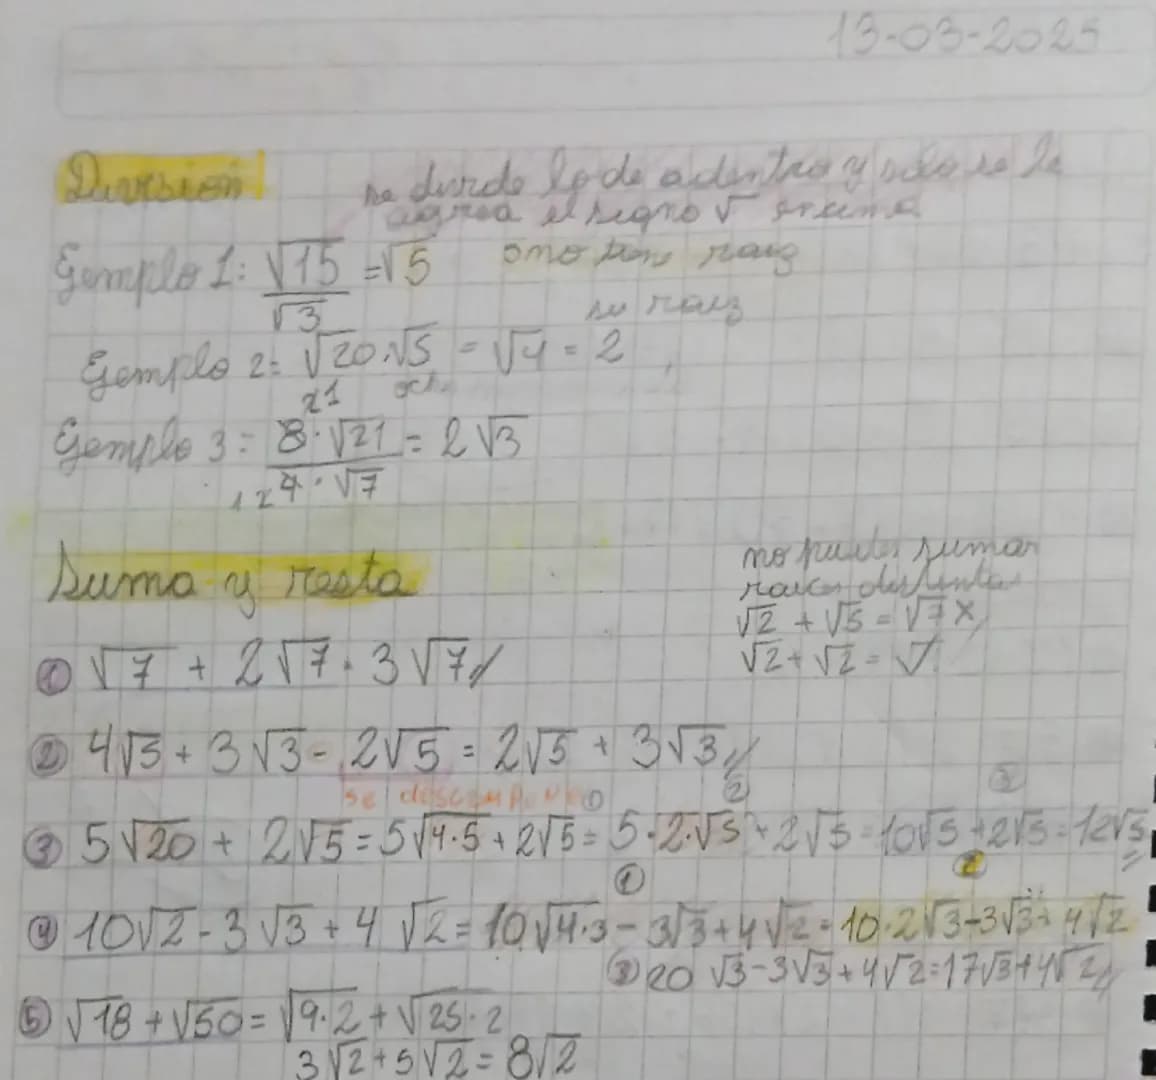 13-03-2025
División se divide lo de adentro y solo se le
agrea el signo √ encima
Ejemplo 1: √15/√3 = √5 raíz
su raíz
Ejemplo 2 = √20 . √5 = √4 = 2
Ejemplo 3 = 8 . √21 / 4 . √7 = 2√3
Suma y resta
no puedes sumar
raíces distintas
√2 + √5 = √7 x
√2 + √2 = √
① √7 + 2√7 . 3√7 //
② 4√5 + 3√3 - 2√5 = 2√5 + 3√3 //
se descompone ① ②
③ 5√20 + 2√5 = 5√4·5 + 2√5 = 5·2·√5 + 2√5 = 10√5 + 2√5 = 12√5
① ②
④ 10√2 - 3√3 + 4√2 = 10√4·3 - 3√3 + 4√2 = 10·2√3 - 3√3 + 4√2
③ 20√3 - 3√3 + 4√2 = 17√3 + 4√2 //
⑤ √18 + √50 = √9·2 + √25·2
3√2 + 5√2 = 8√2